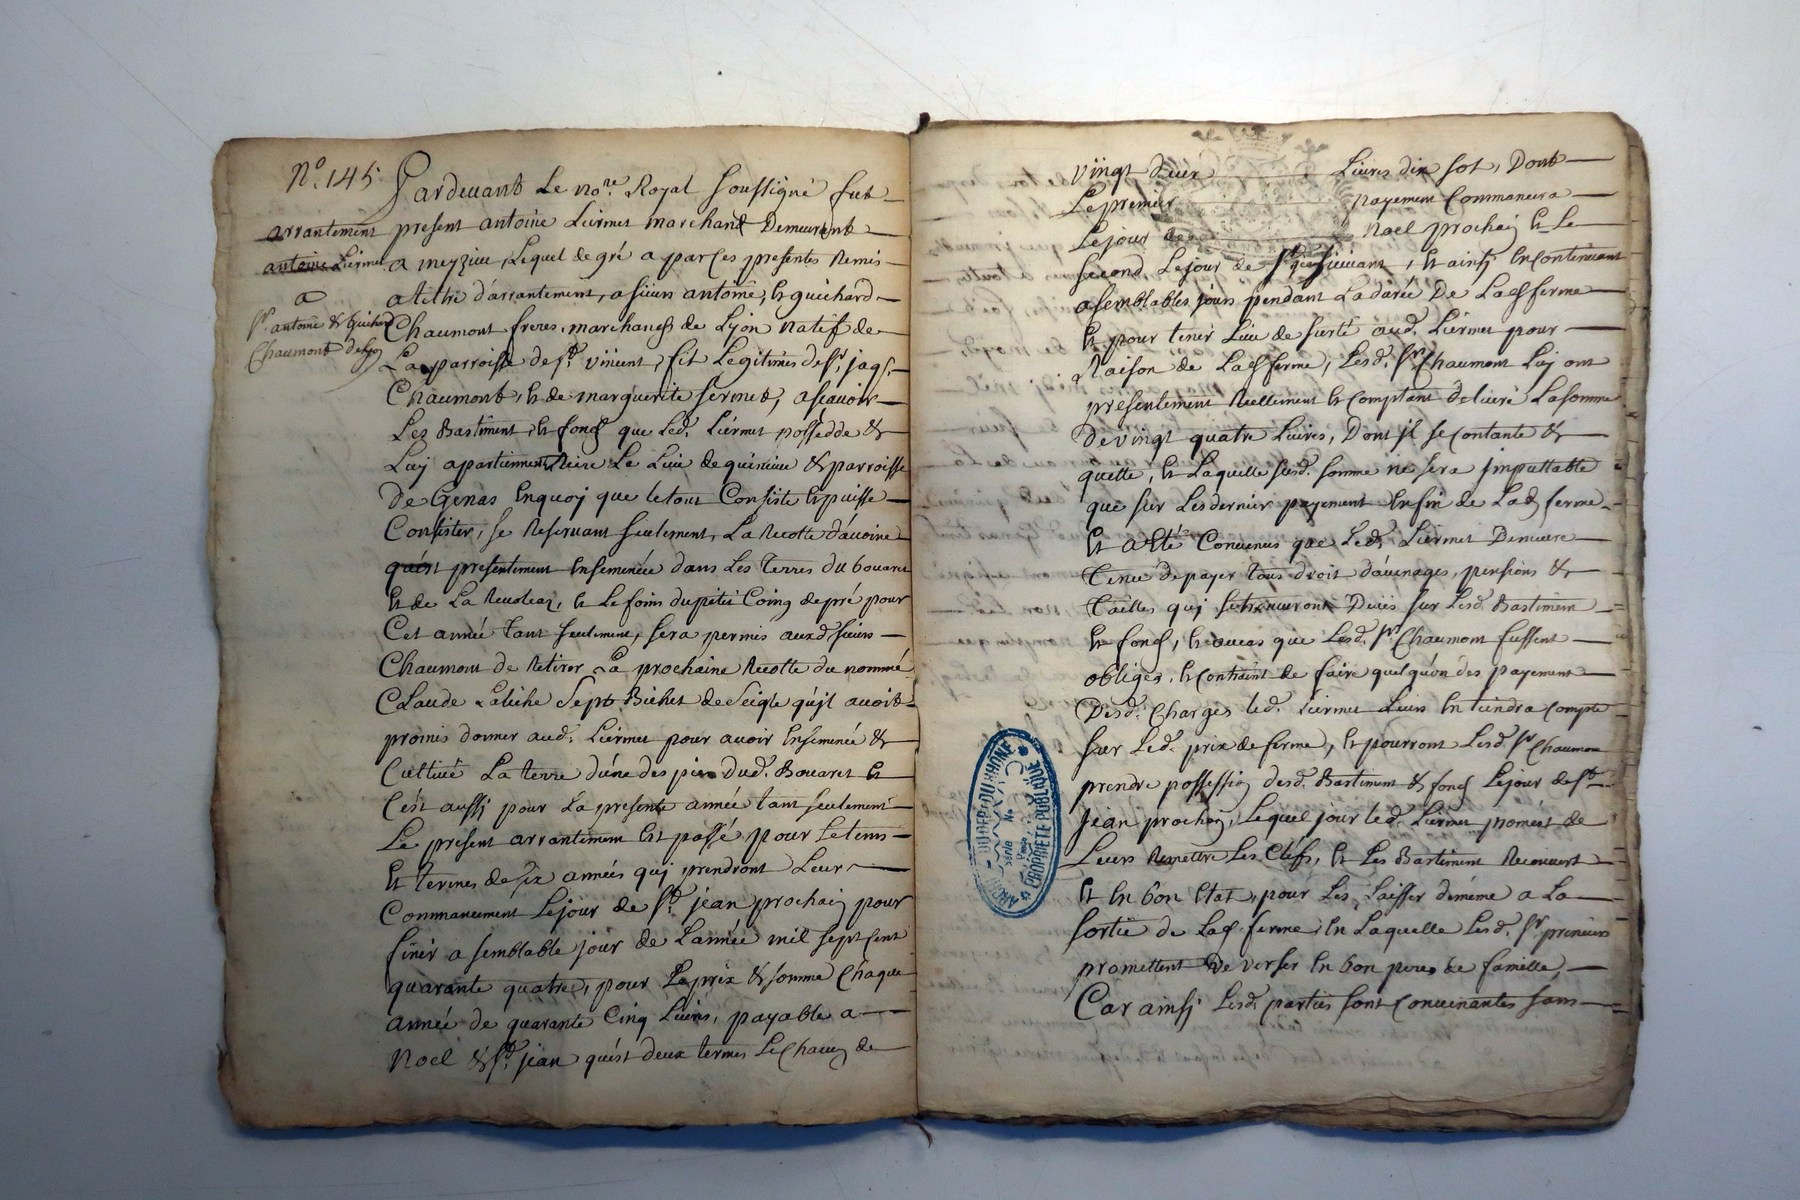 N.° 145
arrantement
antoine Liermet
a
Sr. antoine & Guichard
Chaumont de Lyon
Pardevant Le no.re Royal soussigné fut
present antoine Liermet marchand Demeurant
a meyzieu, Lequel de gré a par ses presentes Remis
a titre d'arrantement, a sieurs antoine, et guichard
Chaumont freres, marchands de Lyon natif de
La parroisse de St. vincent, fils Legitimes de Sr. jaq.
Chaumont, et de marguerite sermet, ascavoir
Les Bastiment, et fond que Led. Liermet possedde &
Luy apartiennent Riere Le Lieu de quinsieu & parroisse
de Genas Enquoy que le tout Consiste et puisse
Consister, se Reservant seulement, La Recolte d'avoine
quest presentement Ensemencée dans Les Terres du bouaret
Et de La, & Le foins du petit Coing de pré pour
Cet année tant seulement, sera permis auxd. sieurs
Chaumont de Retirer La prochaine Recolte du nommé
Claude Laliche Sept Bichet de Seigle qu'il avoit
promis donner aud. Liermet pour avoir Ensemencé &
Cultivé La terre d'une des pies dud. Bouaret Et
C'est aussy pour La presente année tant seulement
Le present arrantement Est passé pour le tems
Et termes de six années quy prendront Leur
Commancement Le jour de St. jean prochain pour
finir a semblable jour de L'année mil sept cent
quarante quatre, pour Le prix & somme Chaque
année de quarante Cinq Livres, payable a
Noel & St. jean quest deux termes Le Chacun de
vingt deux Livres dix sol, Dont
Le premier payement Commancera
Le jour de Noel prochain Et Le
second Le jour de St. jean suivant, Et ainsy En continuant
a semblables jours pendant La durée De Lad. ferme
Et pour tenir Lieu de surté aud. Liermet pour
Raison de Lad. ferme, Lesd. Srs Chaumont Luy ont
presentement Reellement Et comptant delivré La somme
de vingt quatre Livres, Dont jl se contante &
quitte, Et Laquelle susd. somme ne sera jmputtable
que sur Les dernier payement En fin de Lad. ferme
Et a Eté Convenus que Led. Liermet Demeure
Tenu de payer tous droit d'avenages, pensions &
Tailles quy se trouveront Deues sur Lesd. Bastiment
Et fond, Et au cas que Lesd. Srs Chaumont fussent
obligés, Et contraint de faire quelqu'on des payement
Desd. Charges led. Liermet Leurs En tiendra compte
sur Led. prix de ferme, Et pourront Lesd. Sr. Chaumon
prendre possession desd. Bastiment & fond Le jour de St.
jean prochain, Lequel jour led. Liermet promest de
Leurs Remettre Les Clefs, Et Les Bastiment Recouvert
Et En bon Etat, pour Les Laisser de meme a La
sortie de Lad. ferme, En Laquelle Lesd. Sr. preneurs
promettent De verser En bon peres de famille,
Car ainsy Lesd. parties sont convenantes sans
ARCH. DU DEP.T DU RHONE
PROPRIÉTÉ PUBLIQUE